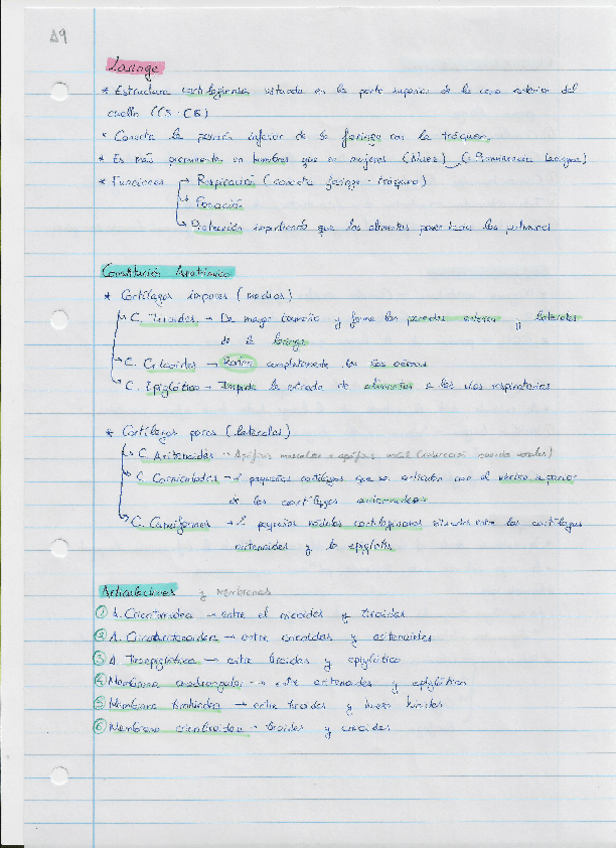 19
Laringe
* Estructura cartilaginosa situada en la parte superior de la cara anterior del
cuello (C5-C6)
* Conecta la porción inferior de la faringe con la tráquea.
* Es más prominente en hombres que en mujeres (Nuez) (Prominencia laríngea)
* Funciones → Respiración (conecta faringe-tráquea)
→ Fonación
→ Protección impidiendo que los alimentos pasen hacia los pulmones
Constitución Anatómica
* Cartílagos impares (medios)
→ C. Tiroides → De mayor tamaño y forma las paredes anterior y laterales
de la laringe
→ C. Cricoides → Rodea completamente las vías aéreas
→ C. Epiglótico → Impide la entrada de alimentos a las vías respiratorias
* Cartílagos pares (laterales)
→ C. Aritenoides → Apófisis muscular + apófisis vocal (cuerdas vocales)
→ C. Corniculados → 2 pequeños cartílagos que se articulan con el vértice superior
de los cartílagos aritenoideos
→ C. Cuneiformes → 2 pequeños nódulos cartilaginosos situados entre los cartílagos
aritenoides y la epiglotis
Articulaciones y Membranas
① A. Cricotiroidea → entre el cricoides y tiroides
② A. Cricoaritenoidea → entre cricoides y aritenoides
③ A. Tiroepiglótica → entre tiroides y epiglótico
④ Membrana cuadrangular → entre aritenoides y epiglótico
⑤ Membrana tirohioidea → entre tiroides y hueso hioides
⑥ Membrana cricotiroidea - tiroides y cricoides